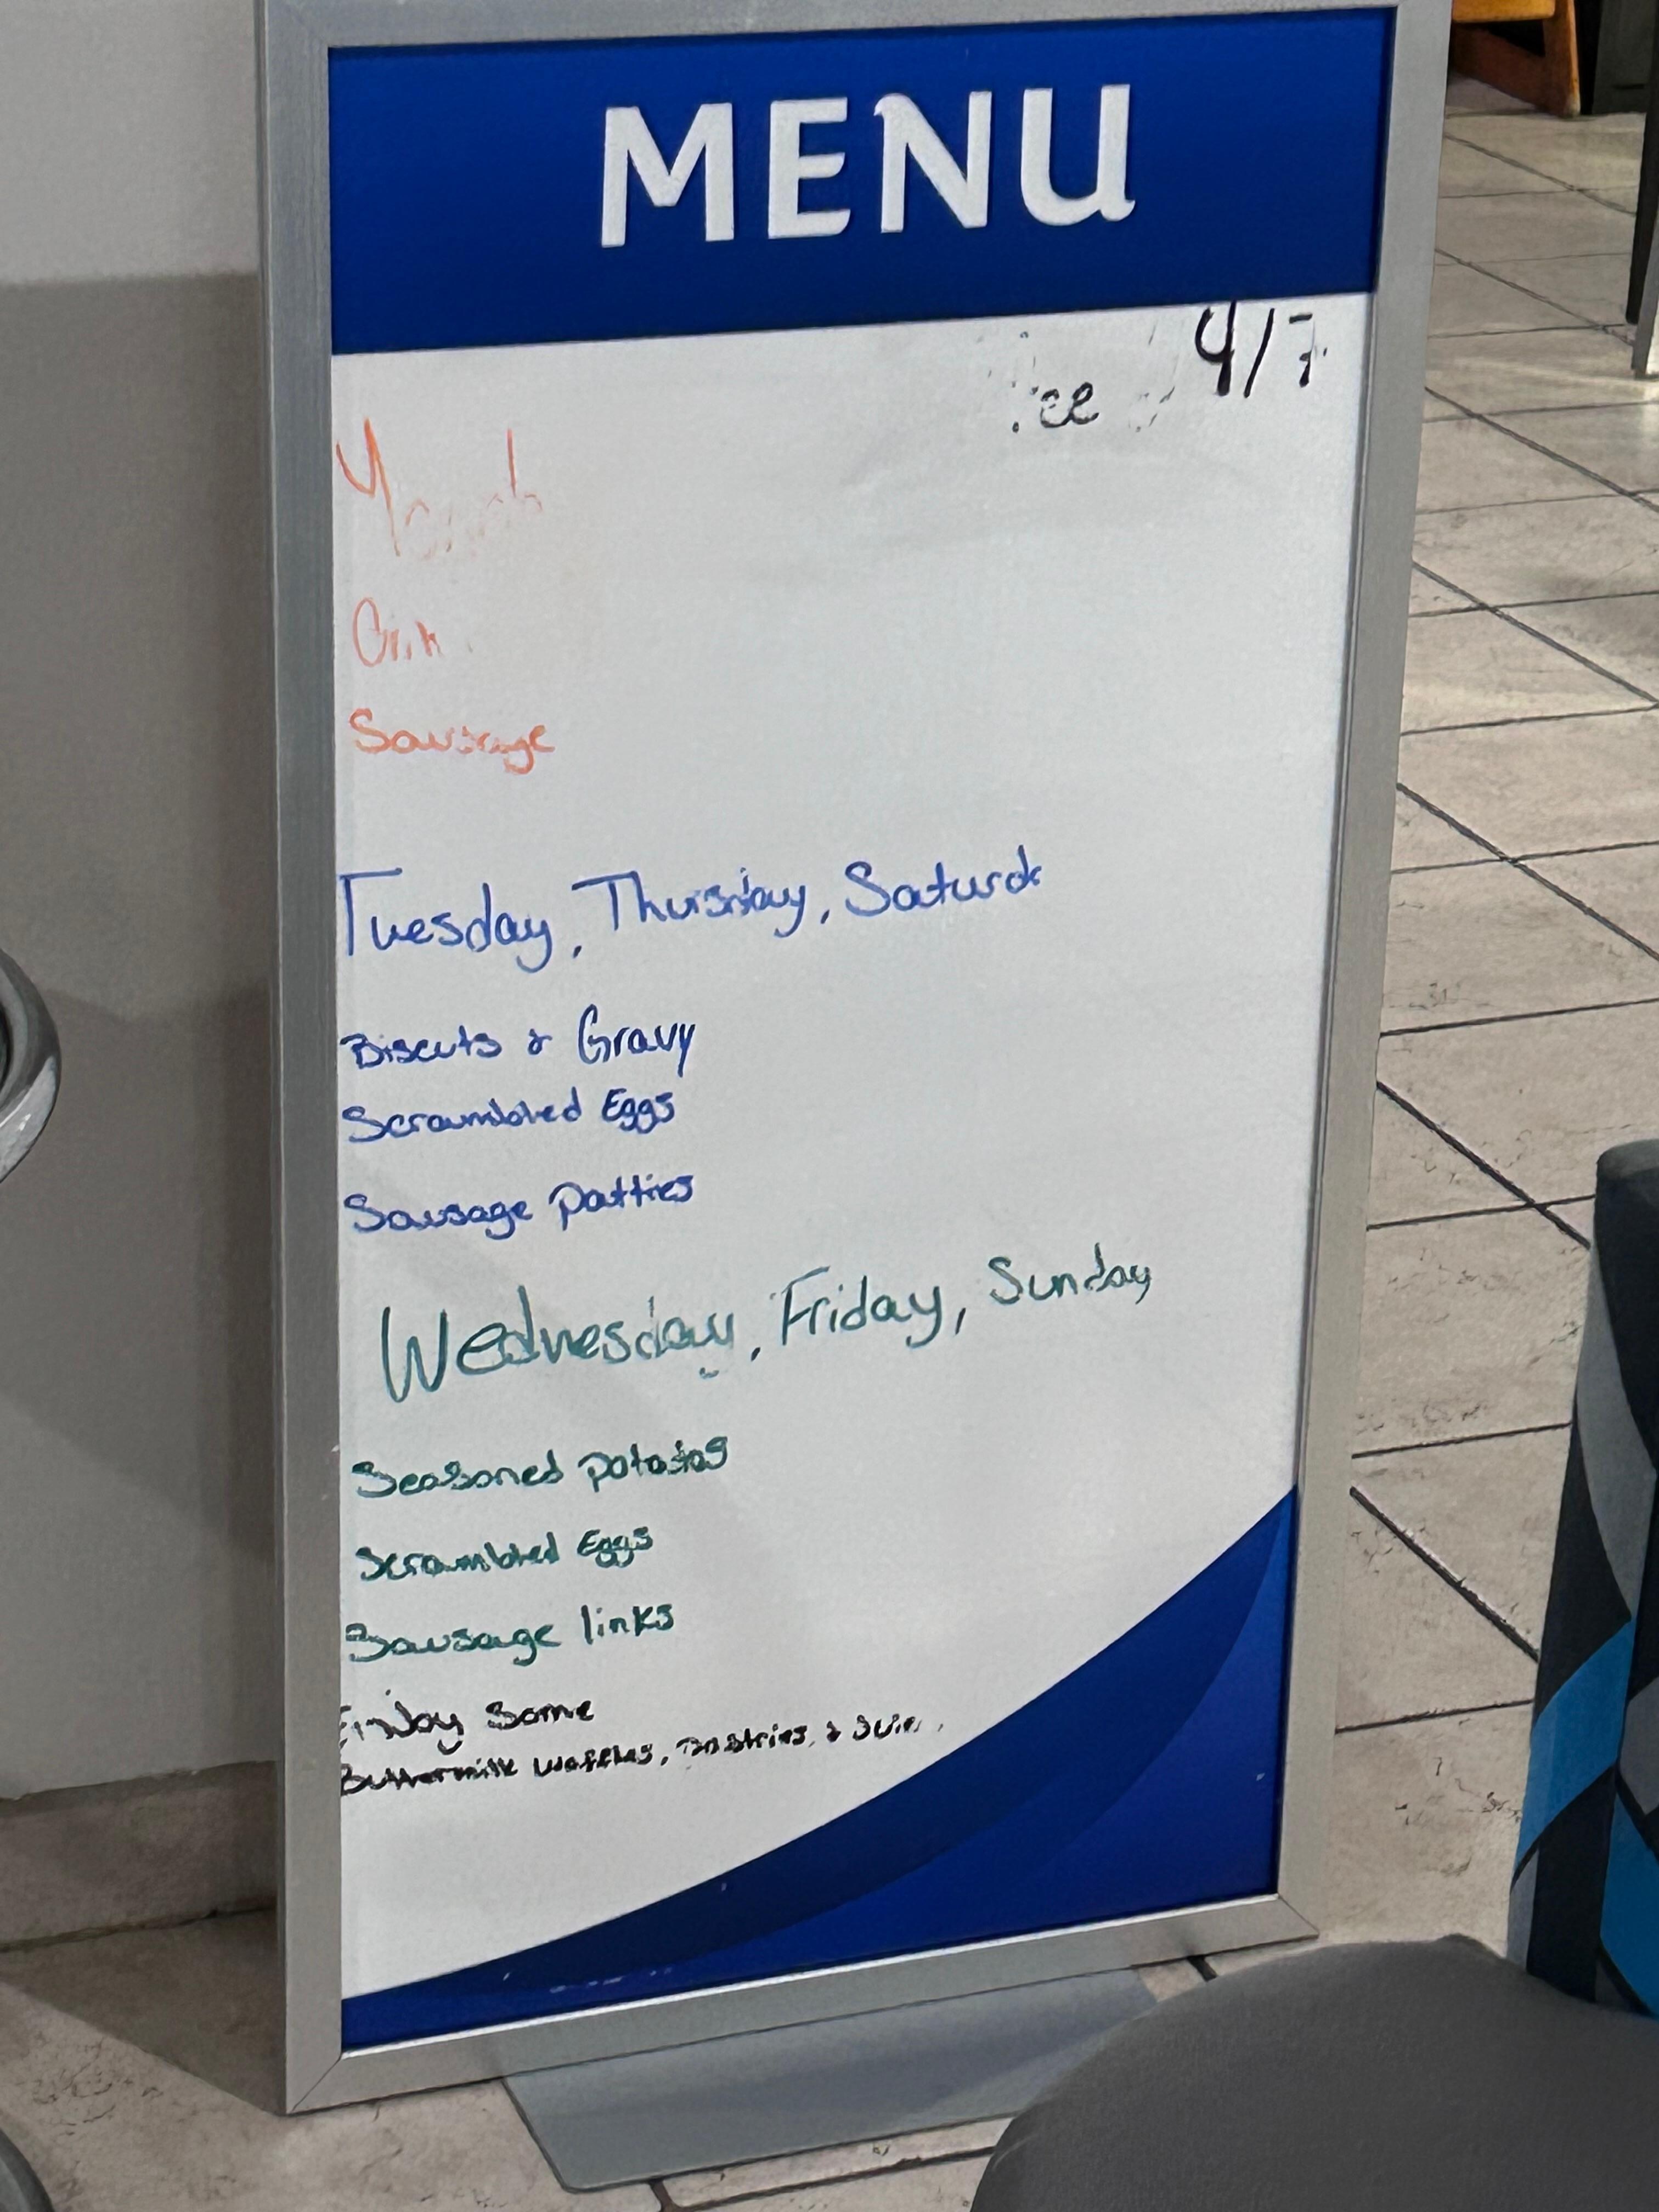 MENU
4/7
Sausage
Tuesday, Thursday, Saturd
Biscuts & Gravy
Scrambled Eggs
Sausage Patties
Wednesday, Friday, Sunday
Seasoned Potatos
Scrambled Eggs
Sausage links
Enjoy Some
Buttermilk Waffles, Pastries, &